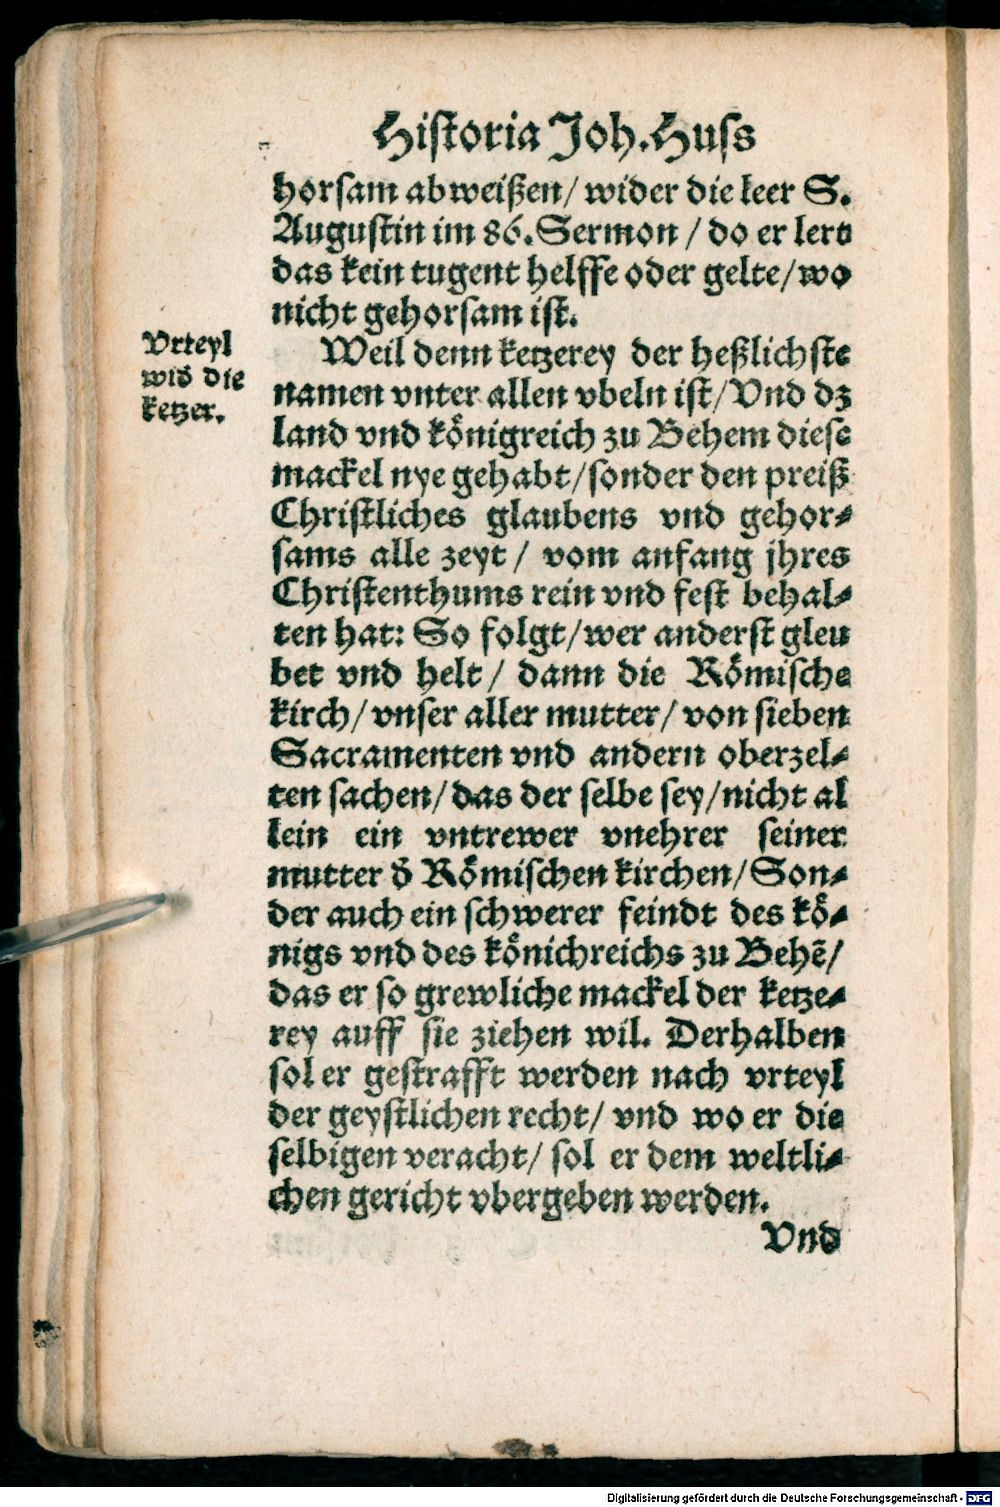 Historia Joh. Huss
horsam abweißen/ wider die leer S.
Augustin im 86. Sermon / do er lert
das kein tugent helffe oder gelte/ wo
nicht gehorsam ist.
Vrteyl
wid̄ die
ketzer.
Weil denn ketzerey der heßlichste
namen vnter allen vbeln ist/ Vnd dz
land vnd koͤnigreich zu Behem diese
mackel nye gehabt/ sonder den preiß
Christliches glaubens vnd gehor⸗
sams alle zeyt / vom anfang jhres
Christenthums rein vnd fest behal⸗
ten hat: So folgt/ wer anderst gleu
bet vnd helt / dann die Roͤmische
kirch/ vnser aller mutter/ von sieben
Sacramenten vnd andern oberzel⸗
ten sachen/ das der selbe sey/ nicht al
lein ein vntrewer vnehrer seiner
mutter d̄ Roͤmischen kirchen/ Son⸗
der auch ein schwerer feindt des koͤ⸗
nigs vnd des koͤnichreichs zu Behē/
das er so grewliche mackel der ketze⸗
rey auff sie ziehen wil. Derhalben
sol er gestrafft werden nach vrteyl
der geystlichen recht/ vnd wo er die
selbigen veracht/ sol er dem weltli⸗
chen gericht vbergeben werden.
Vnd
Digitalisierung gefördert durch die Deutsche Forschungsgemeinschaft - DFG